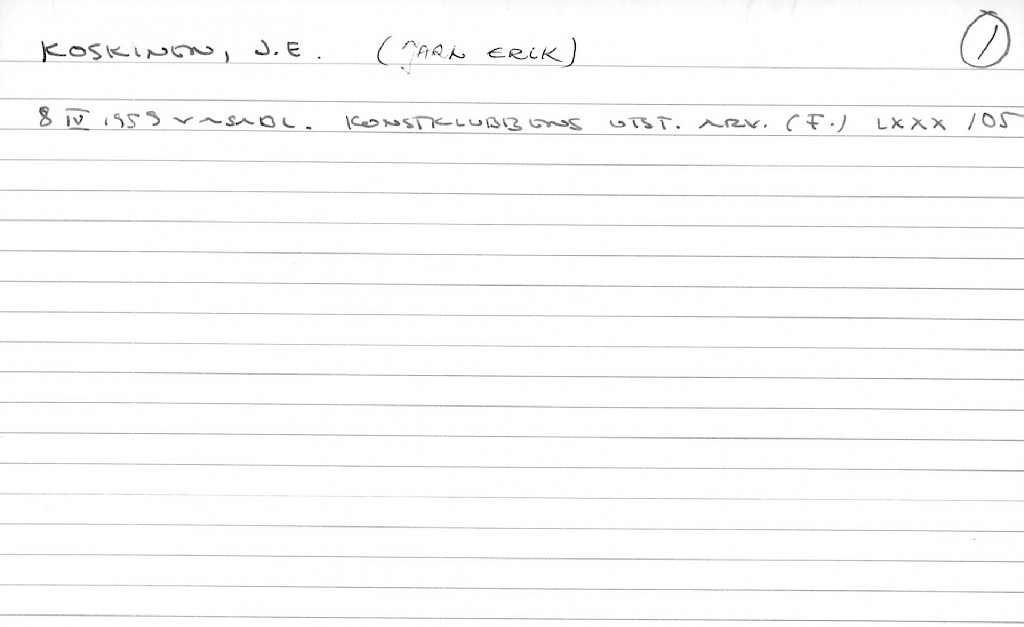 KOSKINEN, J.E. (JARL ERIK) 1
8 IV 1959 VASABL. KONSTKLUBBENS UTST. ARV. (F.) LXXX /05